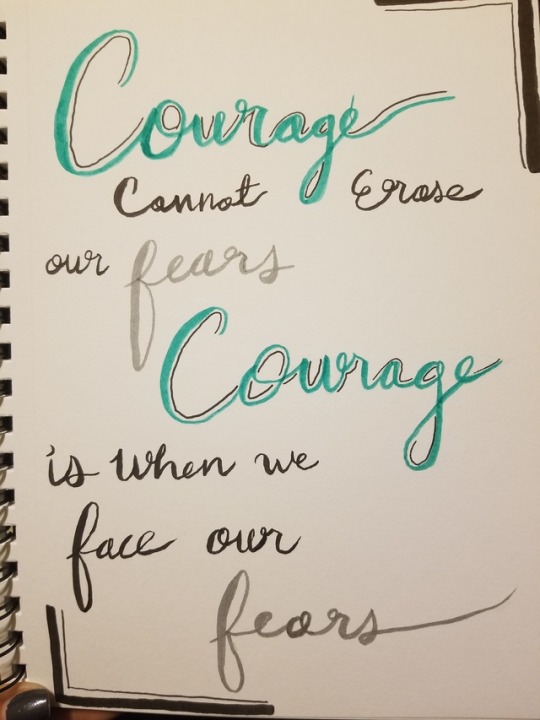 Courage
Cannot Erase
our fears
Courage
is when we
face our
fears